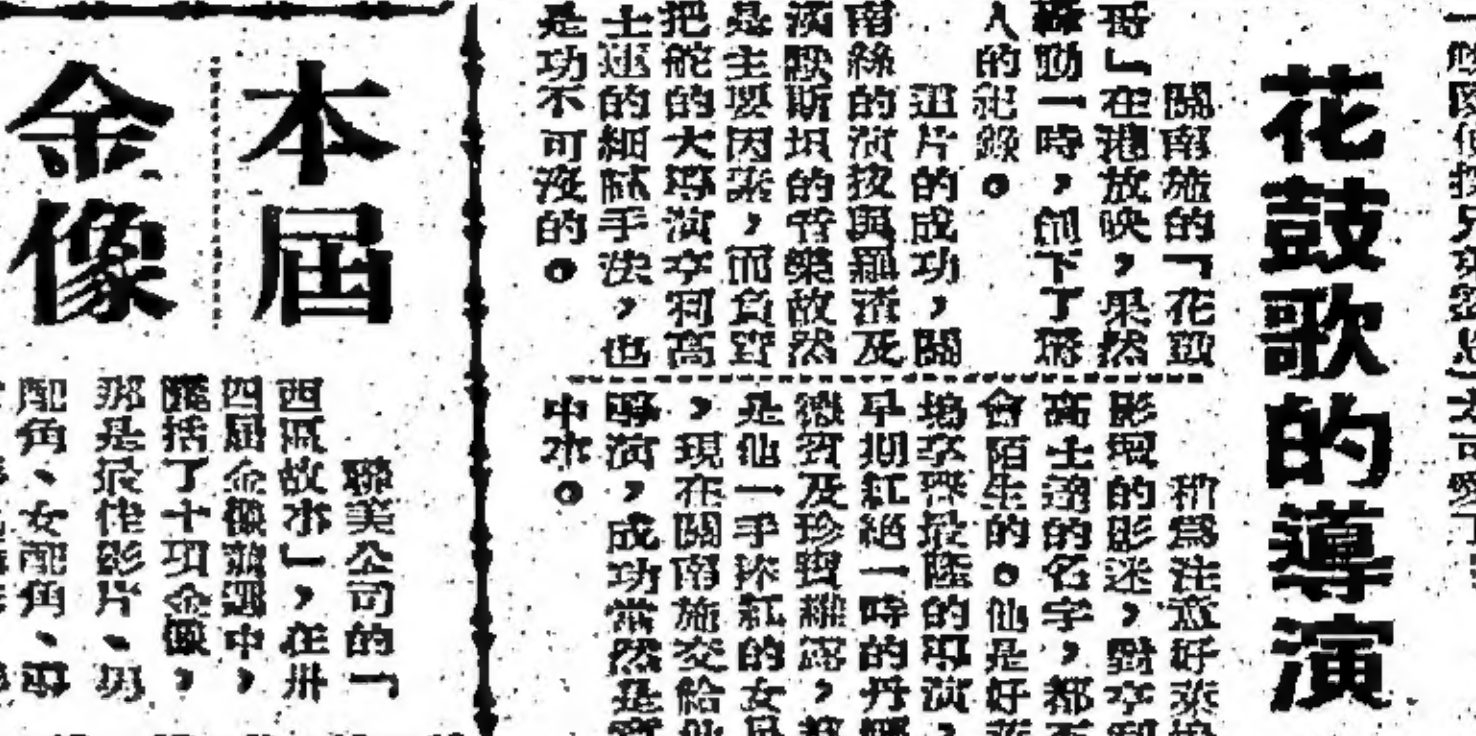 花鼓歌的導演
關南施的「花鼓
哥」在港放映，果然
轟動一時，創下了驚
人的紀錄。
這片的成功，關
南絲的演技與羅渣及
漢默斯坦的音樂故然
是主要因素，而負責
把舵的大導演亨利高
士達的細膩手法，也
是功不可沒的。
稍爲注意好萊塢
影壇的影迷，對亨利
高士達的名字，都不
會陌生的。他是好萊
塢享譽最隆的導演，
早期紅絕一時的丹
微賓及珍寶羅露，
是他一手捧紅的女星
，現在關南施交給他
導演，成功當然是
中水。
本屆
金像
聯美公司的「
西區故事」，在卅
四屆金像獎選中，
囊括了十項金像，
那是最佳影片、男
配角、女配角、導